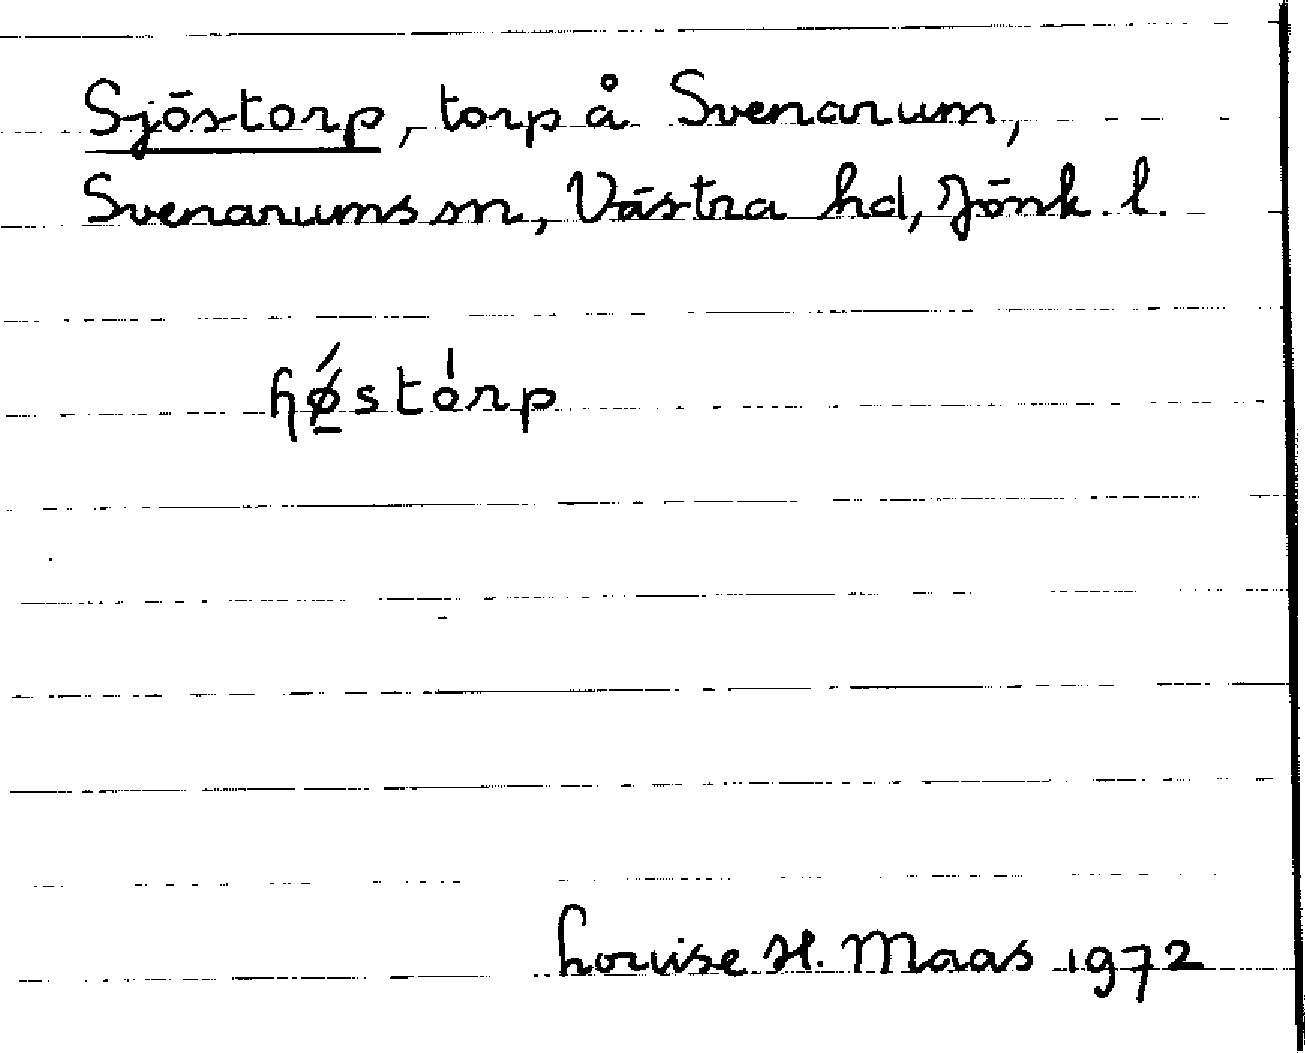 Sjöstorp, torp å Svenarum,
Svenarums sn, Västra hd, Jönk. l.
ɧǿ̲stȯ́rp
Louise H. Maas 1972